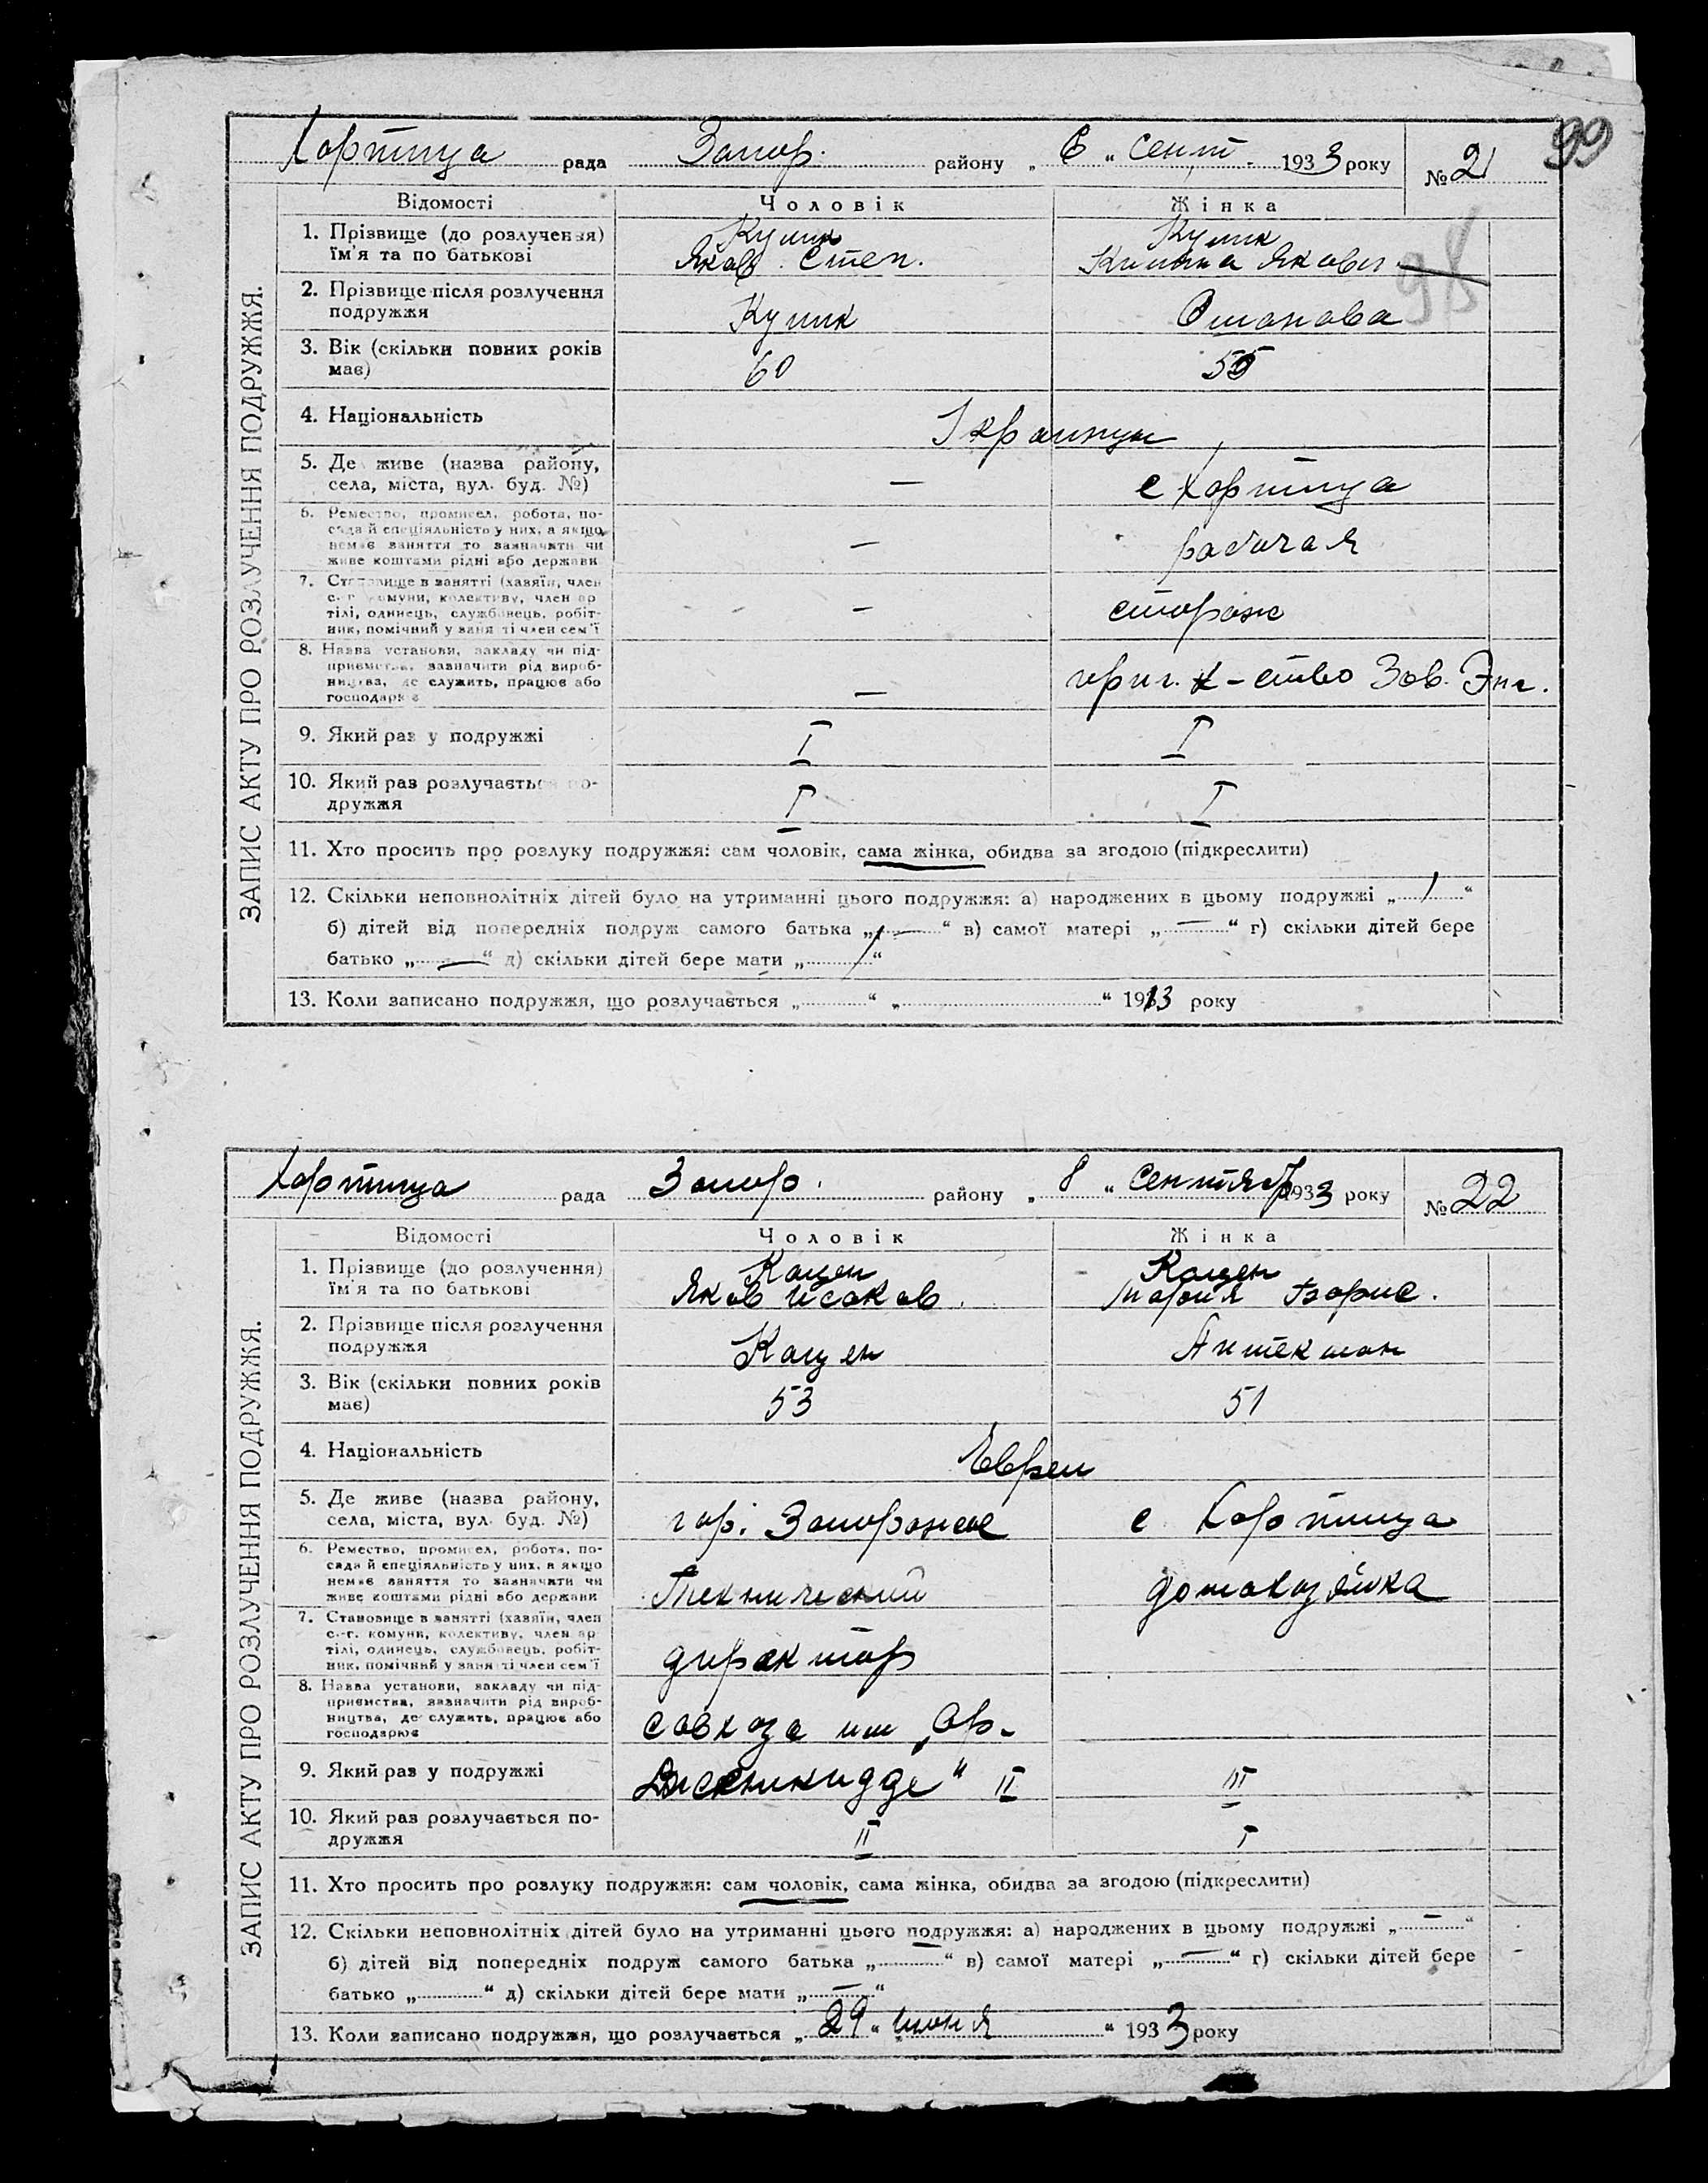 99
Хортица рада Запор. району „ 6 “ сент. 1933 року № 21
Відомості Чоловік Жінка
1. Прізвище (до розлучення) їм'я та по батькові
Яков Степ.
Яковл.
98
2. Прізвище після розлучення подружжя
3. Вік (скільки повних років має)
60
4. Національність
5. Де живе (назва району, села, міста, вул. буд. №)
— с Хортица
6. Ремество, промисел, робота, посада й спеціяльність у них, а якщо немає заняття то зазначити чи живе коштами рідні або держави
— рабочая
7. Становище в занятті (хазяїн, член с.-г. комуни, колективу, член артілі, одинець, службовець, робітник, помічний у занятті член сем'ї
— сторож
8. Назва установи, закладу чи підприємства, зазначити рід виробництва, де служить, працює або господарює
— приг. х-ство Зав. Энг.
9. Який раз у подружжі
I I
10. Який раз розлучається подружжя
I I
11. Хто просить про розлуку подружжя: сам чоловік, сама жінка, обидва за згодою (підкреслити)
12. Скільки неповнолітніх дітей було на утриманні цього подружжя: а) народжених в цьому подружжі „ 1 “
б) дітей від попередніх подруж самого батька „ — “ в) самої матері „ — “ г) скільки дітей бере
батько „ — “ д) скільки дітей бере мати „ 1 “
13. Коли записано подружжя, що розлучається „ “ „ “ 1913 року
ЗАПИС АКТУ ПРО РОЗЛУЧЕННЯ ПОДРУЖЖЯ.
Хортица рада Запор. району „ 8 “ сентяб 1933 року № 22
Відомості Чоловік Жінка
1. Прізвище (до розлучення) їм'я та по батькові
Кацен Кацен
Яков Исаков. Мария Борис.
2. Прізвище після розлучення подружжя
Кацен Аптекман
3. Вік (скільки повних років має)
53 51
4. Національність
Евреи
5. Де живе (назва району, села, міста, вул. буд. №)
гор. Запорожье с Хортица
6. Ремество, промисел, робота, посада й спеціяльність у них, а якщо немає заняття то зазначити чи живе коштами рідні або держави
Технический домохозяйка
7. Становище в занятті (хазяїн, член с.-г. комуни, колективу, член артілі, одинець, службовець, робітник, помічний у занятті член сем'ї
директор
8. Назва установи, закладу чи підприємства, зазначити рід виробництва, де служить, працює або господарює
совхоза им „Ор-
9. Який раз у подружжі
II III
10. Який раз розлучається подружжя
II I
11. Хто просить про розлуку подружжя: сам чоловік, сама жінка, обидва за згодою (підкреслити)
12. Скільки неповнолітніх дітей було на утриманні цього подружжя: а) народжених в цьому подружжі „ — “
б) дітей від попередніх подруж самого батька „ — “ в) самої матері „ — “ г) скільки дітей бере
батько „ “ д) скільки дітей бере мати „ — “
13. Коли записано подружжя, що розлучається „ 29 “ июня “ 1933 року
ЗАПИС АКТУ ПРО РОЗЛУЧЕННЯ ПОДРУЖЖЯ.